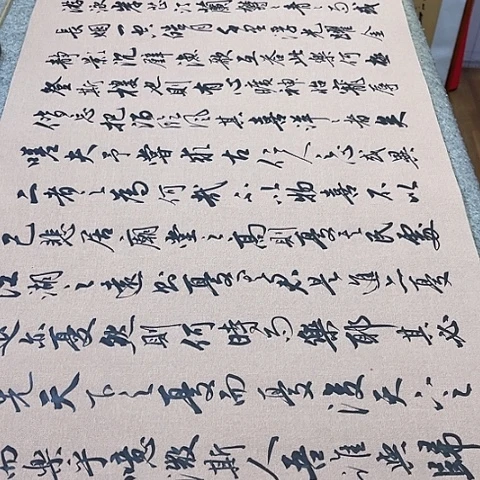 游泳岸芷汀蘭郁郁青青而或
長烟一空皓月千里浮光耀金
靜影沉璧漁歌互答此樂何極
登斯樓也則有心曠神怡寵辱
偕忘把酒臨風其喜洋洋者矣
嗟夫予嘗求古仁人之心或異
二者之為何哉不以物喜不以
己悲居廟堂之高則憂其民處
江湖之遠則憂其君是進亦憂
退亦憂然則何時而樂耶其必
先天下之憂而憂後天下之
而樂乎噫微斯人吾誰與歸